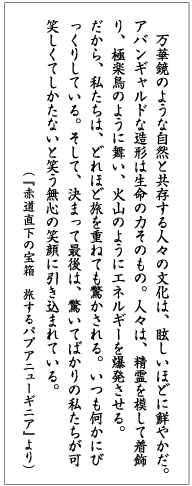 万華鏡のような自然と共存する人々の文化は、眩しいほどに鮮やかだ。
アバンギャルドな造形は生命の力そのもの。人々は、精霊を模して着飾
り、極楽鳥のように舞い、火山のようにエネルギーを爆発させる。
だから、私たちは、どれほど旅を重ねても驚かされる。いつも何かにび
っくりしている。そして、決まって最後は、驚いてばかりの私たちが可
笑しくてしかたないと笑う無心の笑顔に引き込まれている。
(『赤道直下の宝箱　旅するパプアニューギニア』より)